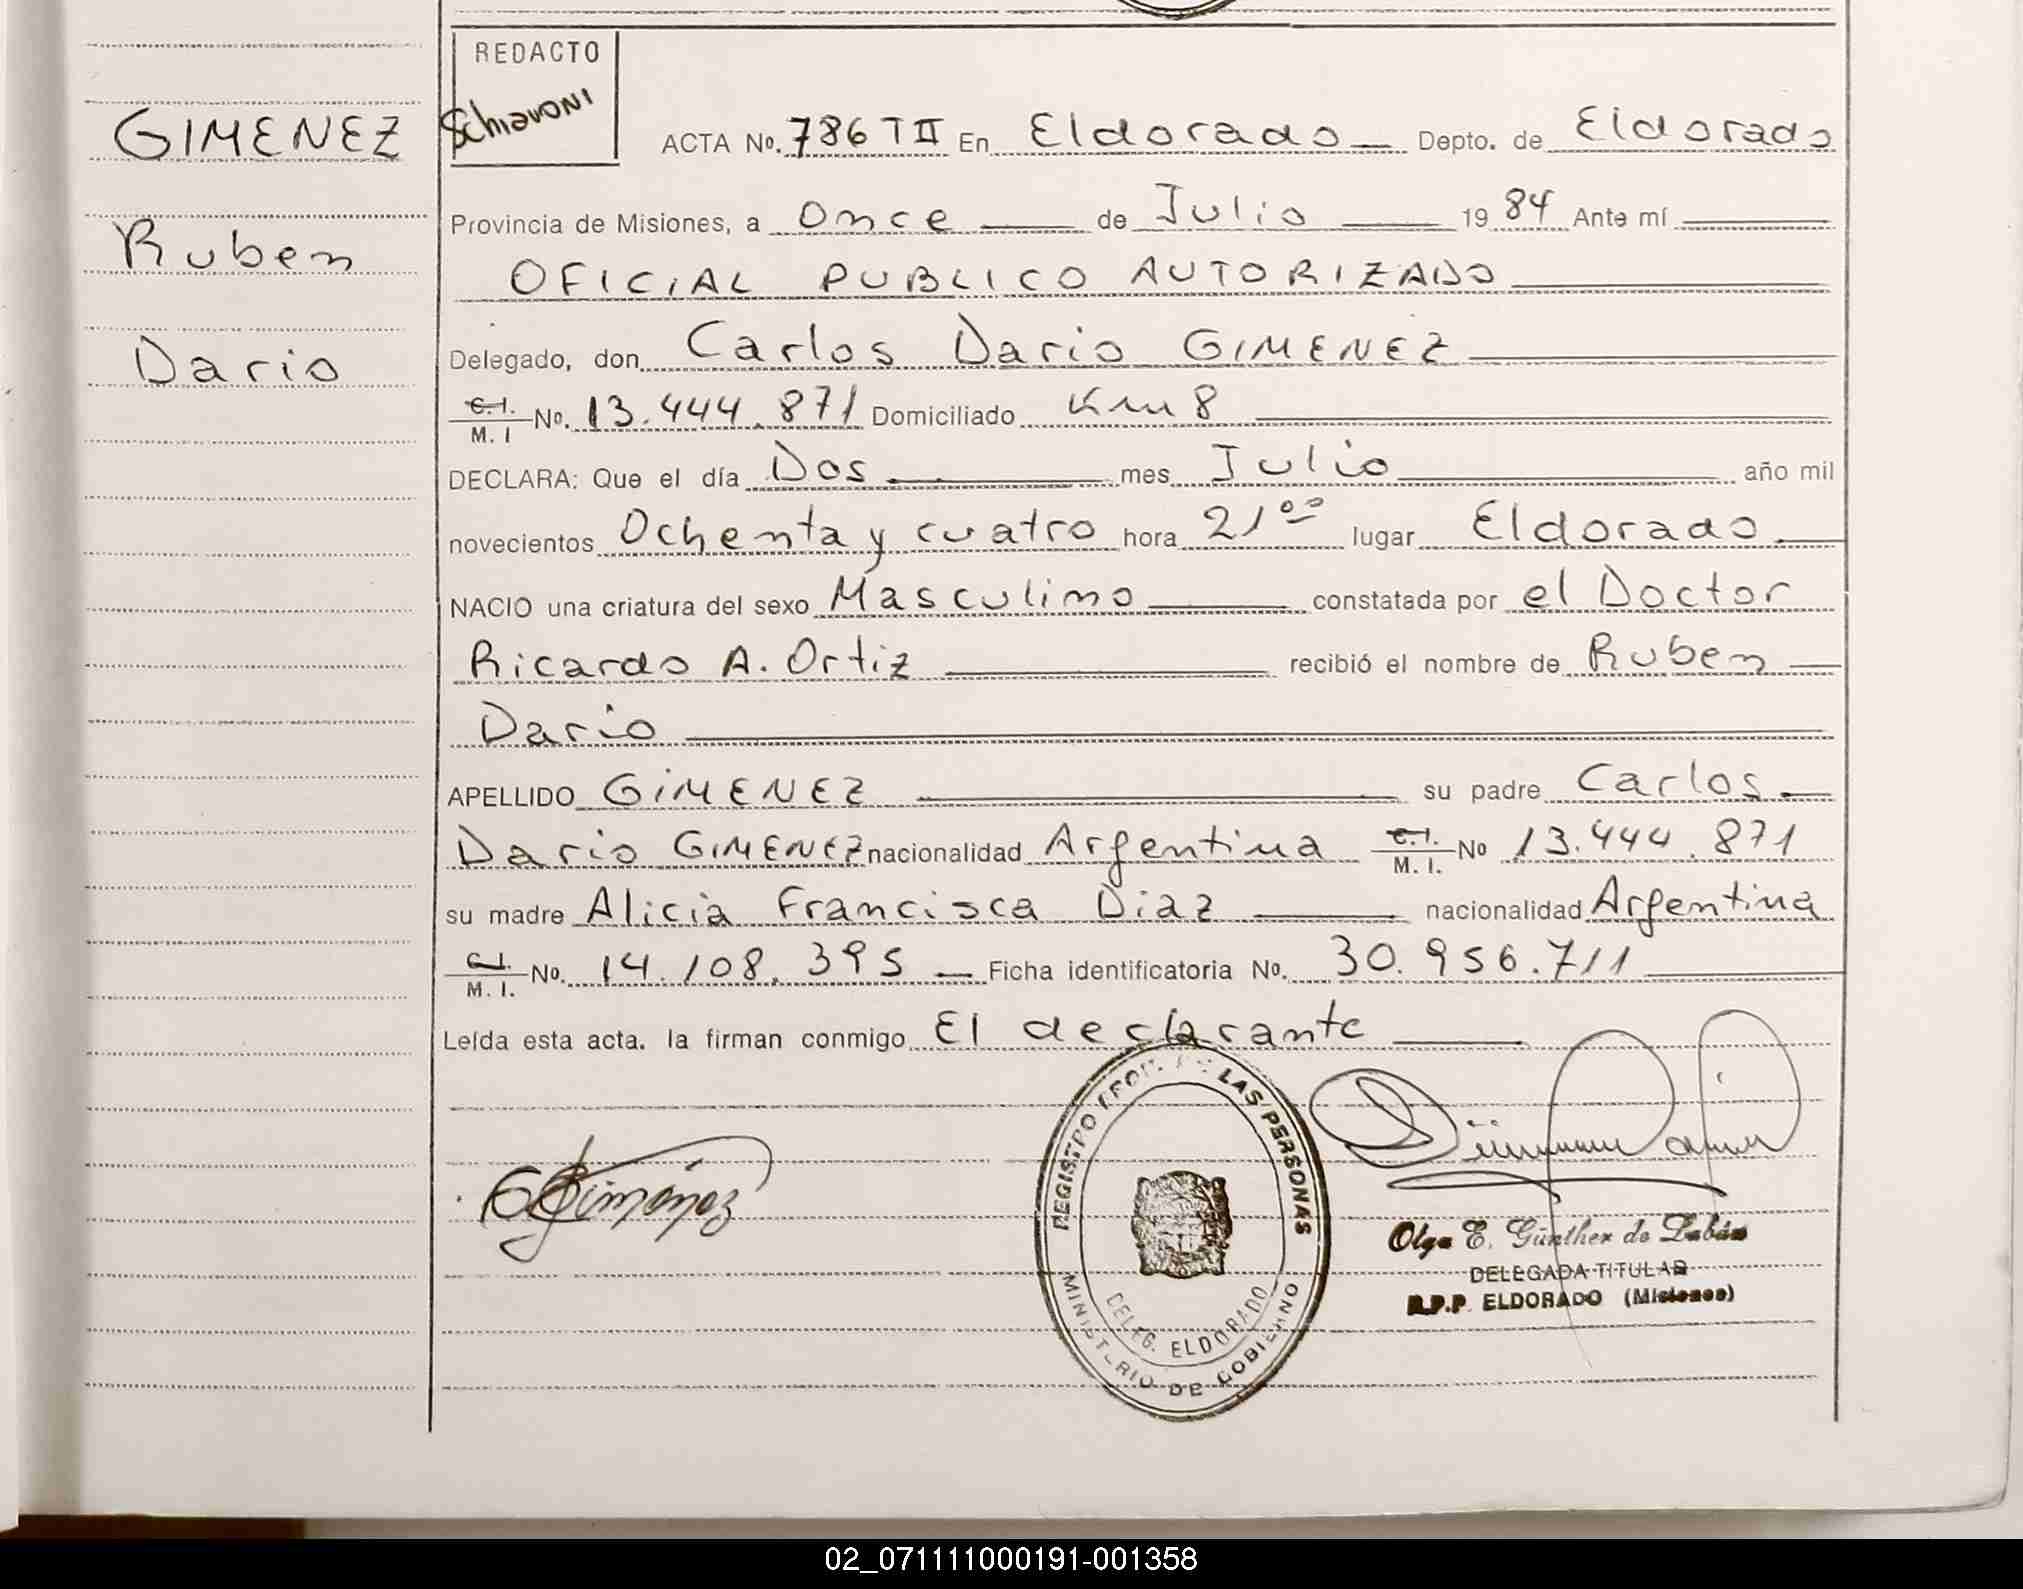 REDACTO
Schiavoni
GIMENEZ
Ruben
Dario
ACTA No. 786 T II En Eldorado Depto. de Eldorado
Provincia de Misiones, a Once de Julio 19 84 Ante mí
OFICIAL PUBLICO AUTORIZADO
Delegado, don Carlos Dario GIMENEZ
C.I. M. I No. 13.444.871 Domiciliado Km 8
DECLARA: Que el día Dos mes Julio año mil
novecientos Ochenta y cuatro hora 21 00 lugar Eldorado
NACIO una criatura del sexo Masculino constatada por el Doctor
Ricardo A. Ortiz recibió el nombre de Ruben
Dario
APELLIDO GIMENEZ su padre Carlos
Dario GIMENEZ nacionalidad Argentina C.I. M. I. No 13.444.871
su madre Alicia Francisca Diaz nacionalidad Argentina
C.I. M. I. No. 14.108.395 Ficha identificatoria No. 30.956.711
Leída esta acta. la firman conmigo El declarante
Gimenez
REGISTRO PROV. DE LAS PERSONAS
DELEG. ELDORADO
MINISTERIO DE GOBIERNO
Olga E. Günther de Labán
DELEGADA TITULAR
R.P.P. ELDORADO (Misiones)
02_071111000191-001358